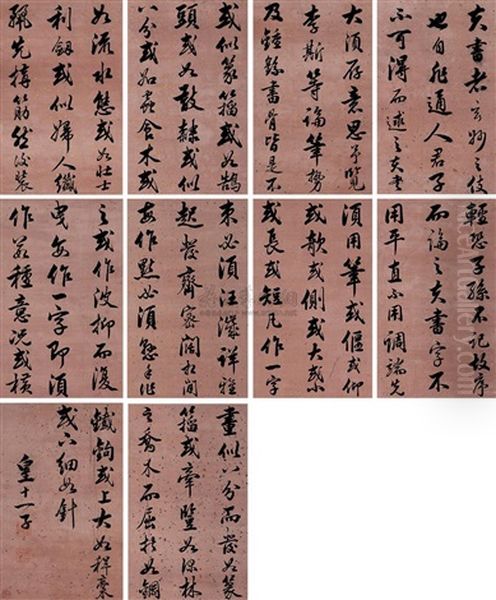 夫書者玄妙之伎
也自非通人君子
不可得而述之夫書
大須存意思予覽
李斯等論筆勢
及鍾繇書骨皆是不
或似篆籀或如鵠
頭或如散隸或似
八分或如蟲食木或
如流水態或如壯士
利劍或似婦人纖
麗先構筋然後裝
輕恐子孫不記故序
而論之夫書字不
用平直不用調端先
須用筆或偃或仰
或欹或側或大或小
或長或短凡作一字
束必須汪濊詳雅
起發齊密闊相間
每作點必須懸手作
之或作波抑而復
曳每作一字即須
作若種意況或橫
畫似八分而發如篆
籀或牽豎如深林
之喬木而屈折如鋼
鐵鉤或上大如稈橐
或下細如針
皇十一子